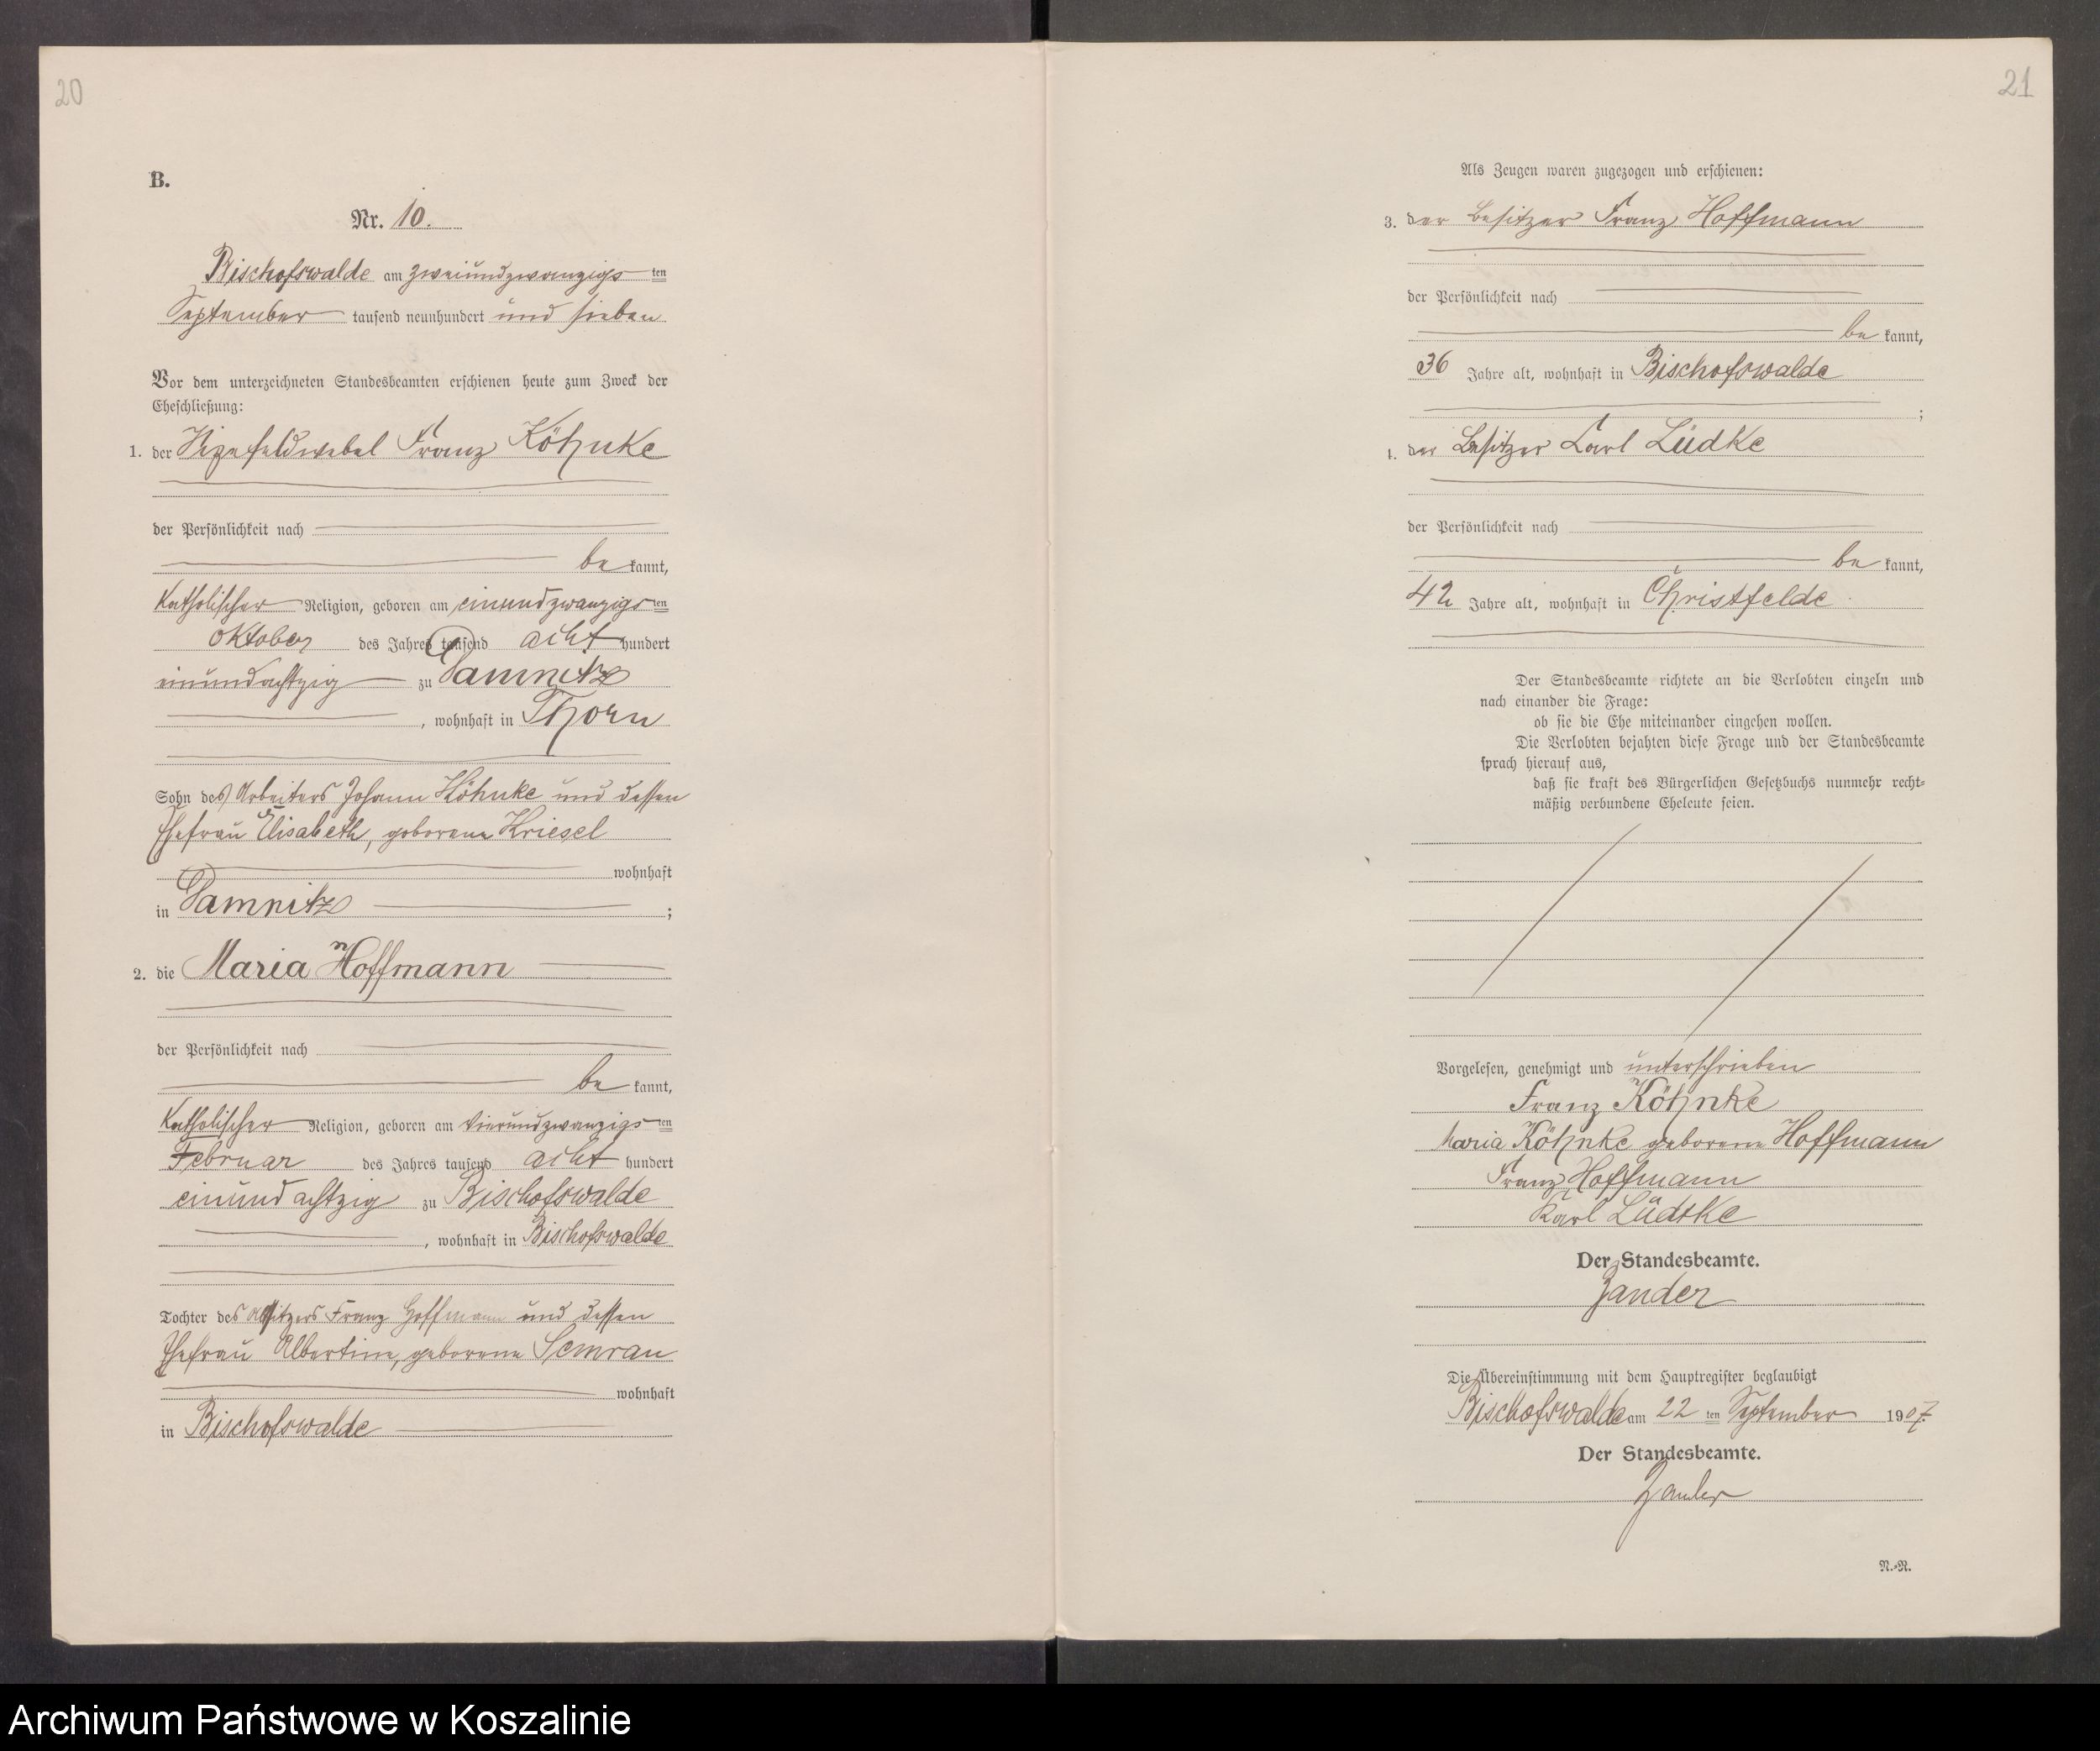 20
B.
Nr. 10.
Bischofswalde am zweiundzwanzigsten
September tausend neunhundert und sieben
Vor dem unterzeichneten Standesbeamten erschienen heute zum Zweck der
Eheschließung:
1. der Vizefeldwebel Franz Köhnke
der Persönlichkeit nach
bekannt,
Katholischer Religion, geboren am einundzwanzigsten
Oktober des Jahres tausend acht hundert
einundachtzig zu Damnitz
, wohnhaft in Thorn
Sohn des Arbeiters Johann Köhnke und dessen
Ehefrau Elisabeth, geborene Kriesel
wohnhaft
in Damnitz ;
2. die Maria Hoffmann
der Persönlichkeit nach
bekannt,
Katholischer Religion, geboren am vierundzwanzigsten
Februar des Jahres tausend acht hundert
einundachtzig zu Bischofswalde
, wohnhaft in Bischofswalde
Tochter des Franz Hoffmann und dessen
Ehefrau Albertine, geborene Semrau
wohnhaft
in Bischofswalde
21
Als Zeugen waren zugezogen und erschienen:
3. der Besitzer Franz Hoffmann
der Persönlichkeit nach
bekannt,
36 Jahre alt, wohnhaft in Bischofswalde
;
4. der Besitzer Carl Lüdke
der Persönlichkeit nach
bekannt,
42 Jahre alt, wohnhaft in Christfelde
Der Standesbeamte richtete an die Verlobten einzeln und
nach einander die Frage:
ob sie die Ehe miteinander eingehen wollen.
Die Verlobten bejahten diese Frage und der Standesbeamte
sprach hierauf aus,
daß sie kraft des Bürgerlichen Gesetzbuchs nunmehr recht-
mäßig verbundene Eheleute seien.
Vorgelesen, genehmigt und unterschrieben
Franz Köhnke
Maria Köhnke geborene Hoffmann
Franz Hoffmann
Karl Lüdtke
Der Standesbeamte.
Zander
Die Übereinstimmung mit dem Hauptregister beglaubigt
Bischofswalde am 22 ten September 1907.
Der Standesbeamte.
Zander
N.-R.
Archiwum Państwowe w Koszalinie